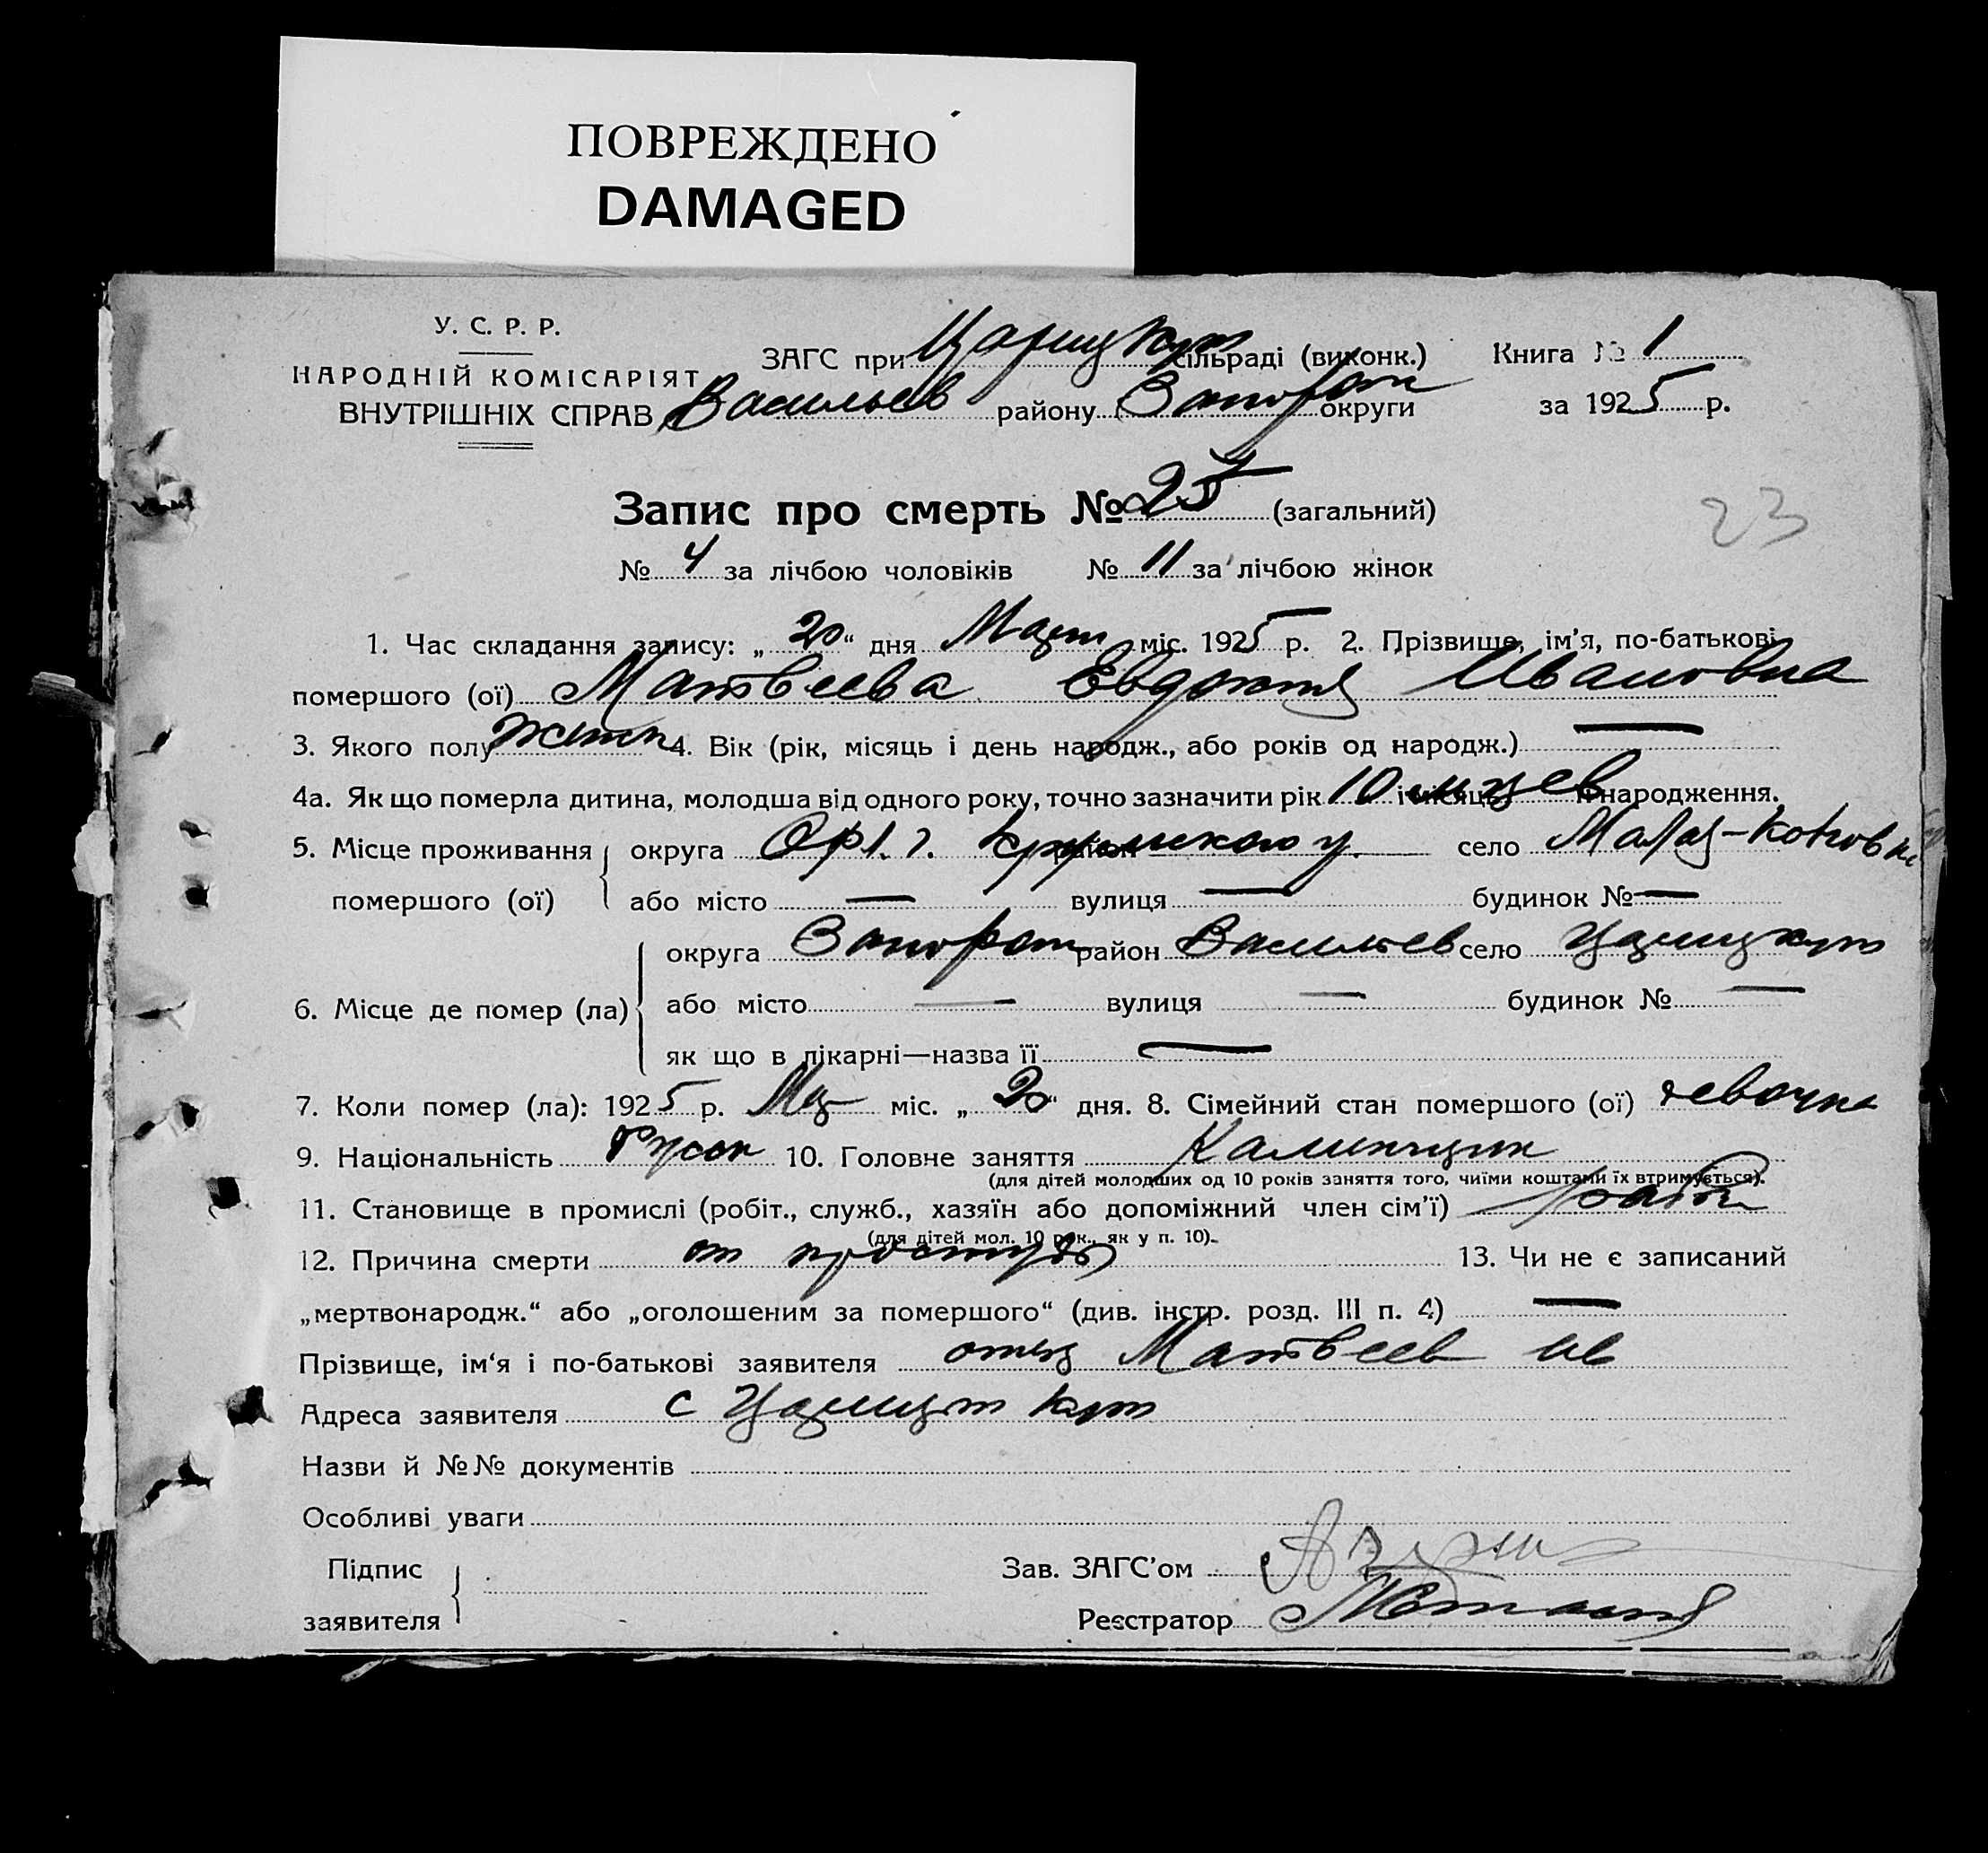 ПОВРЕЖДЕНО
DAMAGED
У. С. Р. Р.
НАРОДНІЙ КОМІСАРІЯТ
ВНУТРІШНІХ СПРАВ
ЗАГС при Царицкут сільраді (виконк.) Книга № 1
Васильев району Запорож округи за 1925 р.
Запис про смерть № 25 (загальний)
23
№ 4 за лічбою чоловіків № 11 за лічбою жінок
1. Час складання запису: „20“ дня Март міс. 1925 р. 2. Прізвище, ім'я, по-батькові
помершого (ої) Матвеева Евдокия Ивановна
3. Якого полу женск 4. Вік (рік, місяць і день народж., або років од народж.) —
4а. Як що померла дитина, молодша від одного року, точно зазначити рік 10 м-цев і місяць її народження.
5. Місце проживання помершого (ої) округа Орл. г. район у. село Малая-
або місто — вулиця — будинок № —
6. Місце де помер (ла) округа Запорож район Васильев село Царицкут
або місто — вулиця — будинок № —
як що в лікарні—назва її —
7. Коли помер (ла): 1925 р. Мар міс. „20“ дня. 8. Сімейний стан помершого (ої) девочка
9. Національність Русск 10. Головне заняття
(для дітей молодших од 10 років заняття того, чиїми коштами їх втримується).
11. Становище в промислі (робіт., служб., хазяїн або допоміжний член сім'ї)
(для дітей мол. 10 рок., як у п. 10).
12. Причина смерти от простуды 13. Чи не є записаний
„мертвонародж.“ або „оголошеним за помершого“ (див. інстр. розд. III п. 4) —
Прізвище, ім'я і по-батькові заявителя отец Матвеев Ив
Адреса заявителя с Царицын Кут
Назви й №№ документів
Особливі уваги
Підпис заявителя
Зав. ЗАГС'ом
Реєстратор